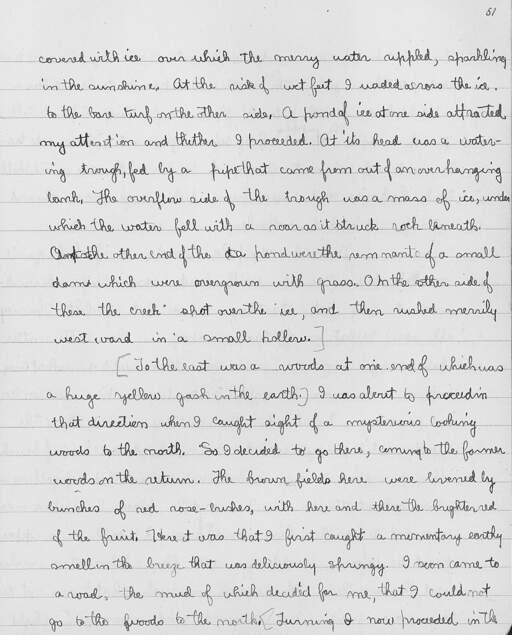 51
covered with ice over which the merry water rippled, sparkling
in the sunshine. At the risk of wet feet I waded across the ice
to the bare turf on the other side. A pond of ice at one side attracted
my attention and thither I proceeded. At its head was a water-
ing trough, fed by a pipe that came from out of an overhanging
bank. The overflow side of the trough was a mass of ice, under
which the water fell with a roar as it struck rock beneath.
the other end of the pond were the remnants of a small
dam which were overgrown with grass. On the other side of
these the creek shot over the ice, and then rushed merrily
westward in a small hollow.]
[To the east was a woods at one end of which was
a huge yellow gash in the earth.] I was about to proceed in
that direction when I caught sight of a mysterious looking
woods to the north. So I decided to go there, coming to the former
woods on the return. The brown fields here were livened by
bunches of red rose-bushes, with here and there the brighter red
of the fruit. Here it was that I first caught a momentary earthy
smell in the breeze that was deliciously springy. I soon came to
a road, the mud of which decided for me, that I could not
go to the woods to the north. [Turning I now proceeded in the